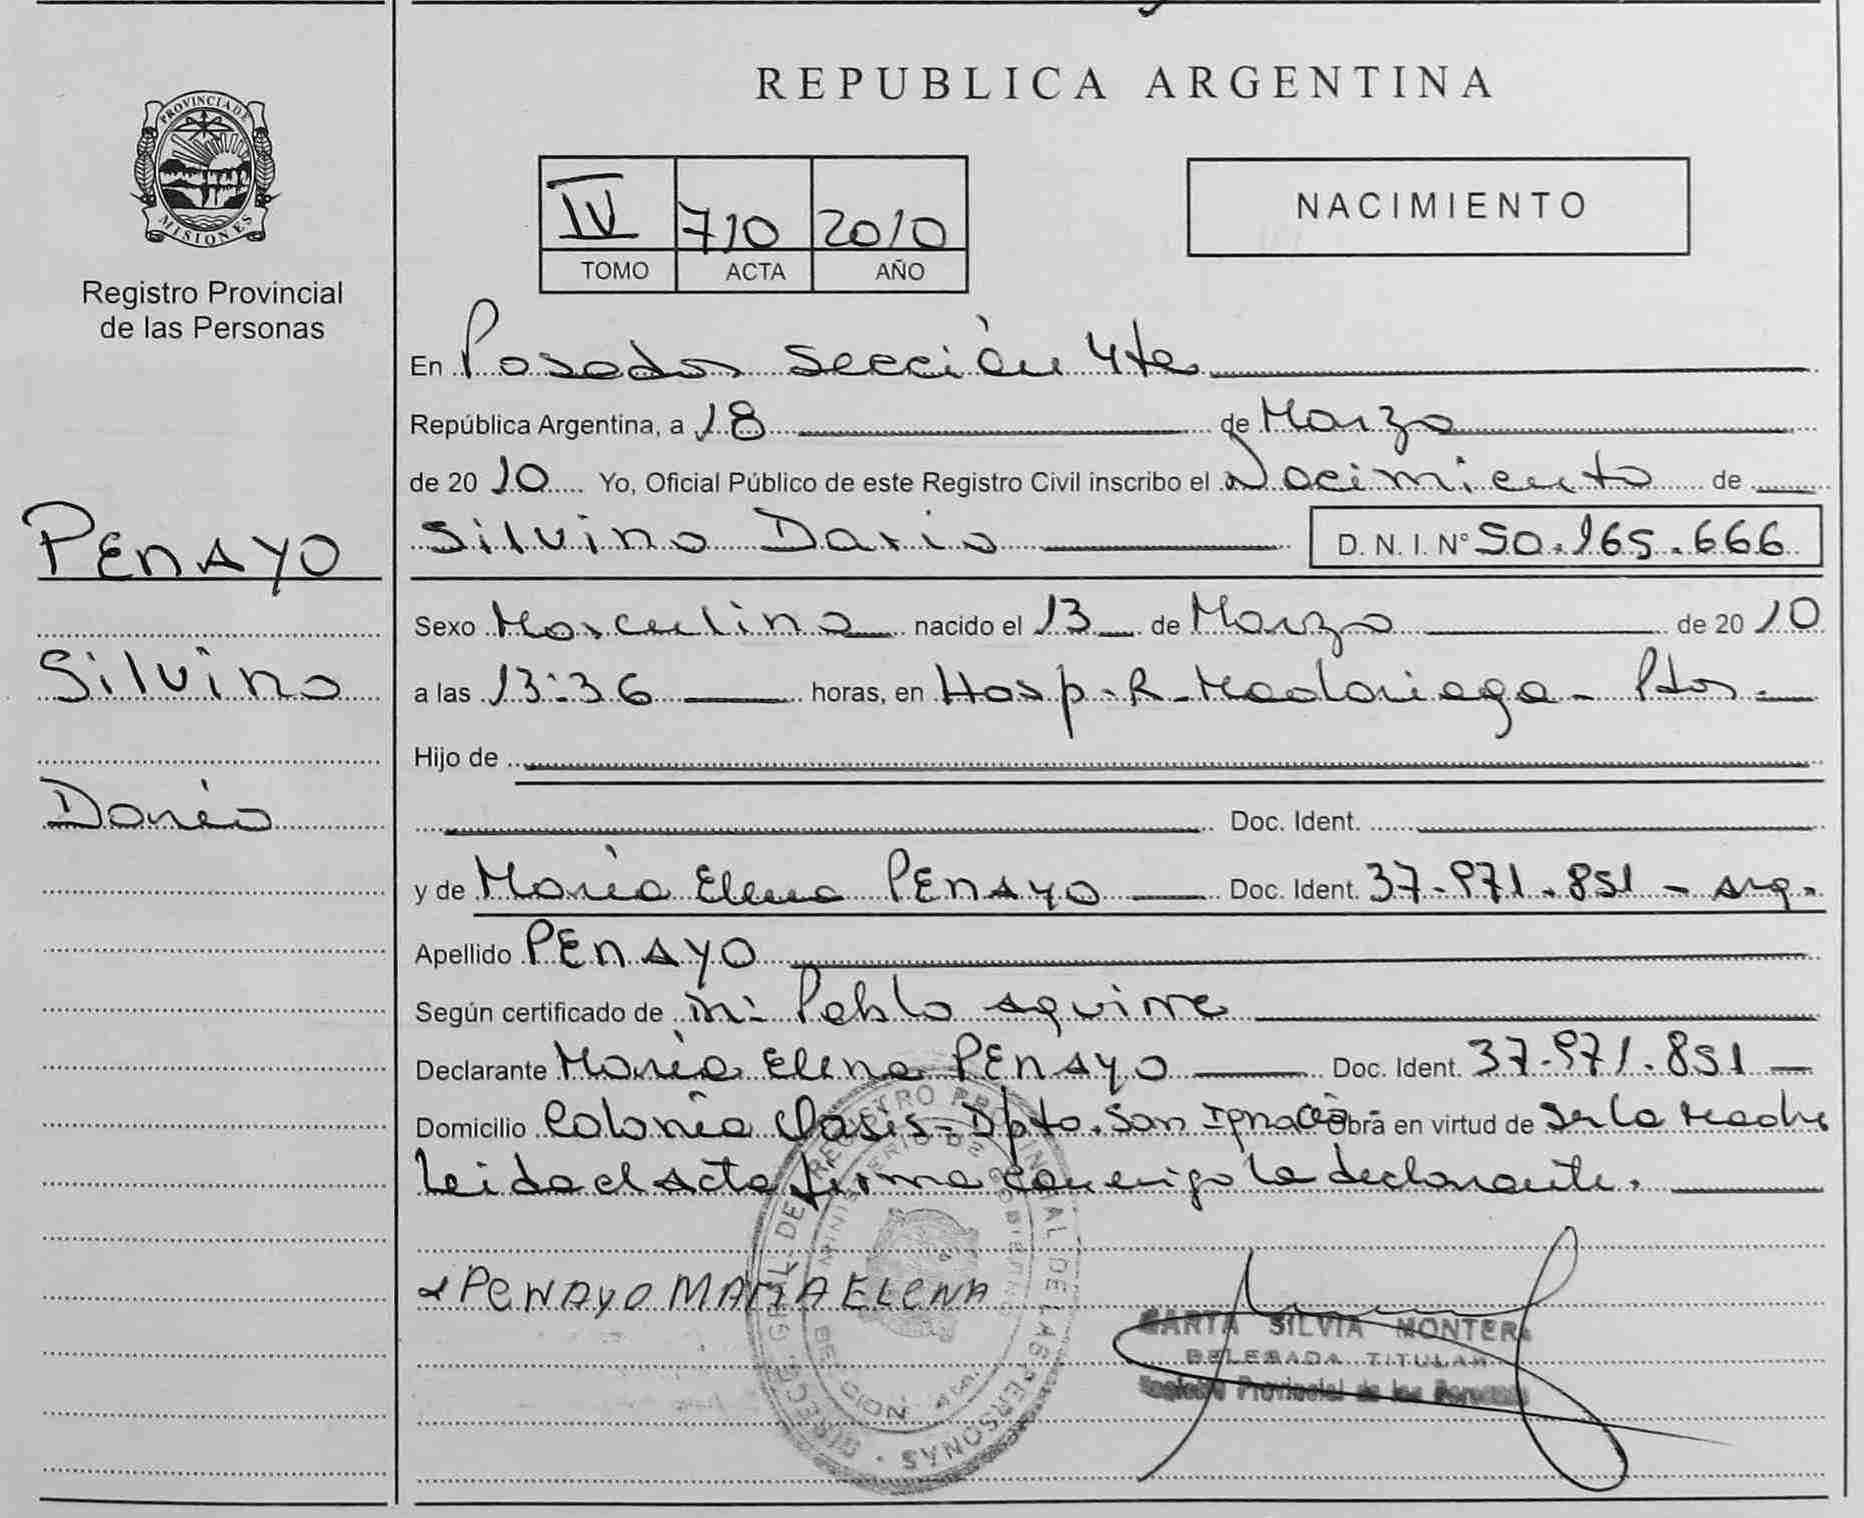 PROVINCIA DE MISIONES
Registro Provincial
de las Personas
PENAYO
Silvino
Dario
REPUBLICA ARGENTINA
IV 710 2010
TOMO ACTA AÑO
NACIMIENTO
En Posadas Sección 4ta
República Argentina, a 18 de Marzo
de 20 10 Yo, Oficial Público de este Registro Civil inscribo el Nacimiento de
Silvino Dario D. N. I. Nº 50.165.666
Sexo Masculino nacido el 13 de Marzo de 20 10
a las 13:36 horas, en Hosp. R. Madariaga - Pdas.
Hijo de
Doc. Ident.
y de María Elena PENAYO Doc. Ident. 37.971.851 - Arg.
Apellido PENAYO
Según certificado de Pablo Aguirre
Declarante María Elena PENAYO Doc. Ident. 37.971.851
Domicilio Colonia Oasis - Dpto. San Ignacio Obra en virtud de ser la Madre
Leida el Acta firma conmigo la declarante.
PENAYO MARIA ELENA
SILVIA MONTER
DELEGADA TITULAR
Registro Provincial de las Personas
REGISTRO PROVINCIAL DE LAS PERSONAS
MINISTERIO DE GOBIERNO